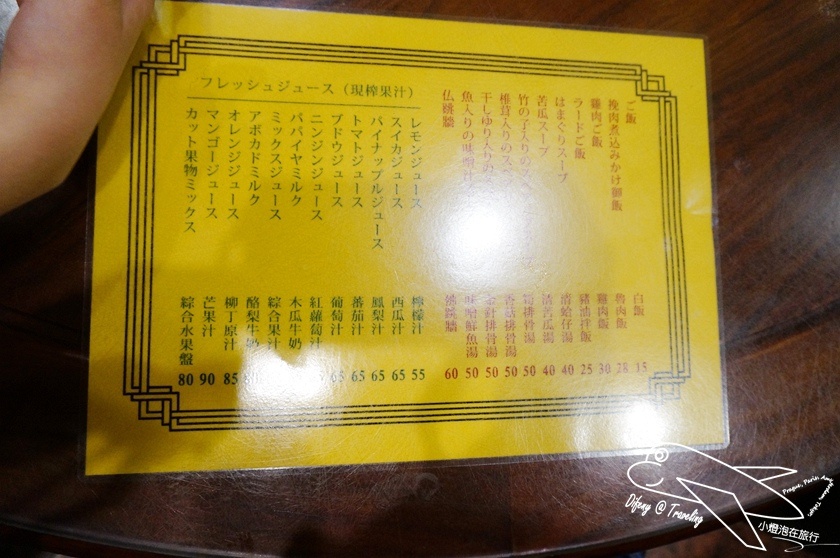 ご飯 白飯 15
挽肉煮込みかけ御飯 魯肉飯 28
雞肉ご飯 雞肉飯 30
ラードご飯 豬油拌飯 25
はまぐりスープ 清蛤仔湯 40
苦瓜スープ 清苦瓜湯 40
竹の子入りのス 筍排骨湯 50
椎茸入りのスペ 香菇排骨湯 50
干しゆり入りの 金針排骨湯 50
魚入りの味噌汁 味噌鮮魚湯 50
仏跳牆 佛跳牆 60
フレッシュジュース（現榨果汁）
レモンジュース 檸檬汁 55
スイカジュース 西瓜汁 65
パイナップルジュース 鳳梨汁 65
トマトジュース 蕃茄汁 65
ブドウジュース 葡萄汁 65
ニンジンジュース 紅蘿蔔汁
パパイヤミルク 木瓜牛奶
ミックスジュース 綜合果汁
アボカドミルク 酪梨牛奶
オレンジジュース 柳丁原汁 85
マンゴージュース 芒果汁 90
カット果物ミックス 綜合水果盤 80
Difeng @ Traveling
小燈泡在旅行